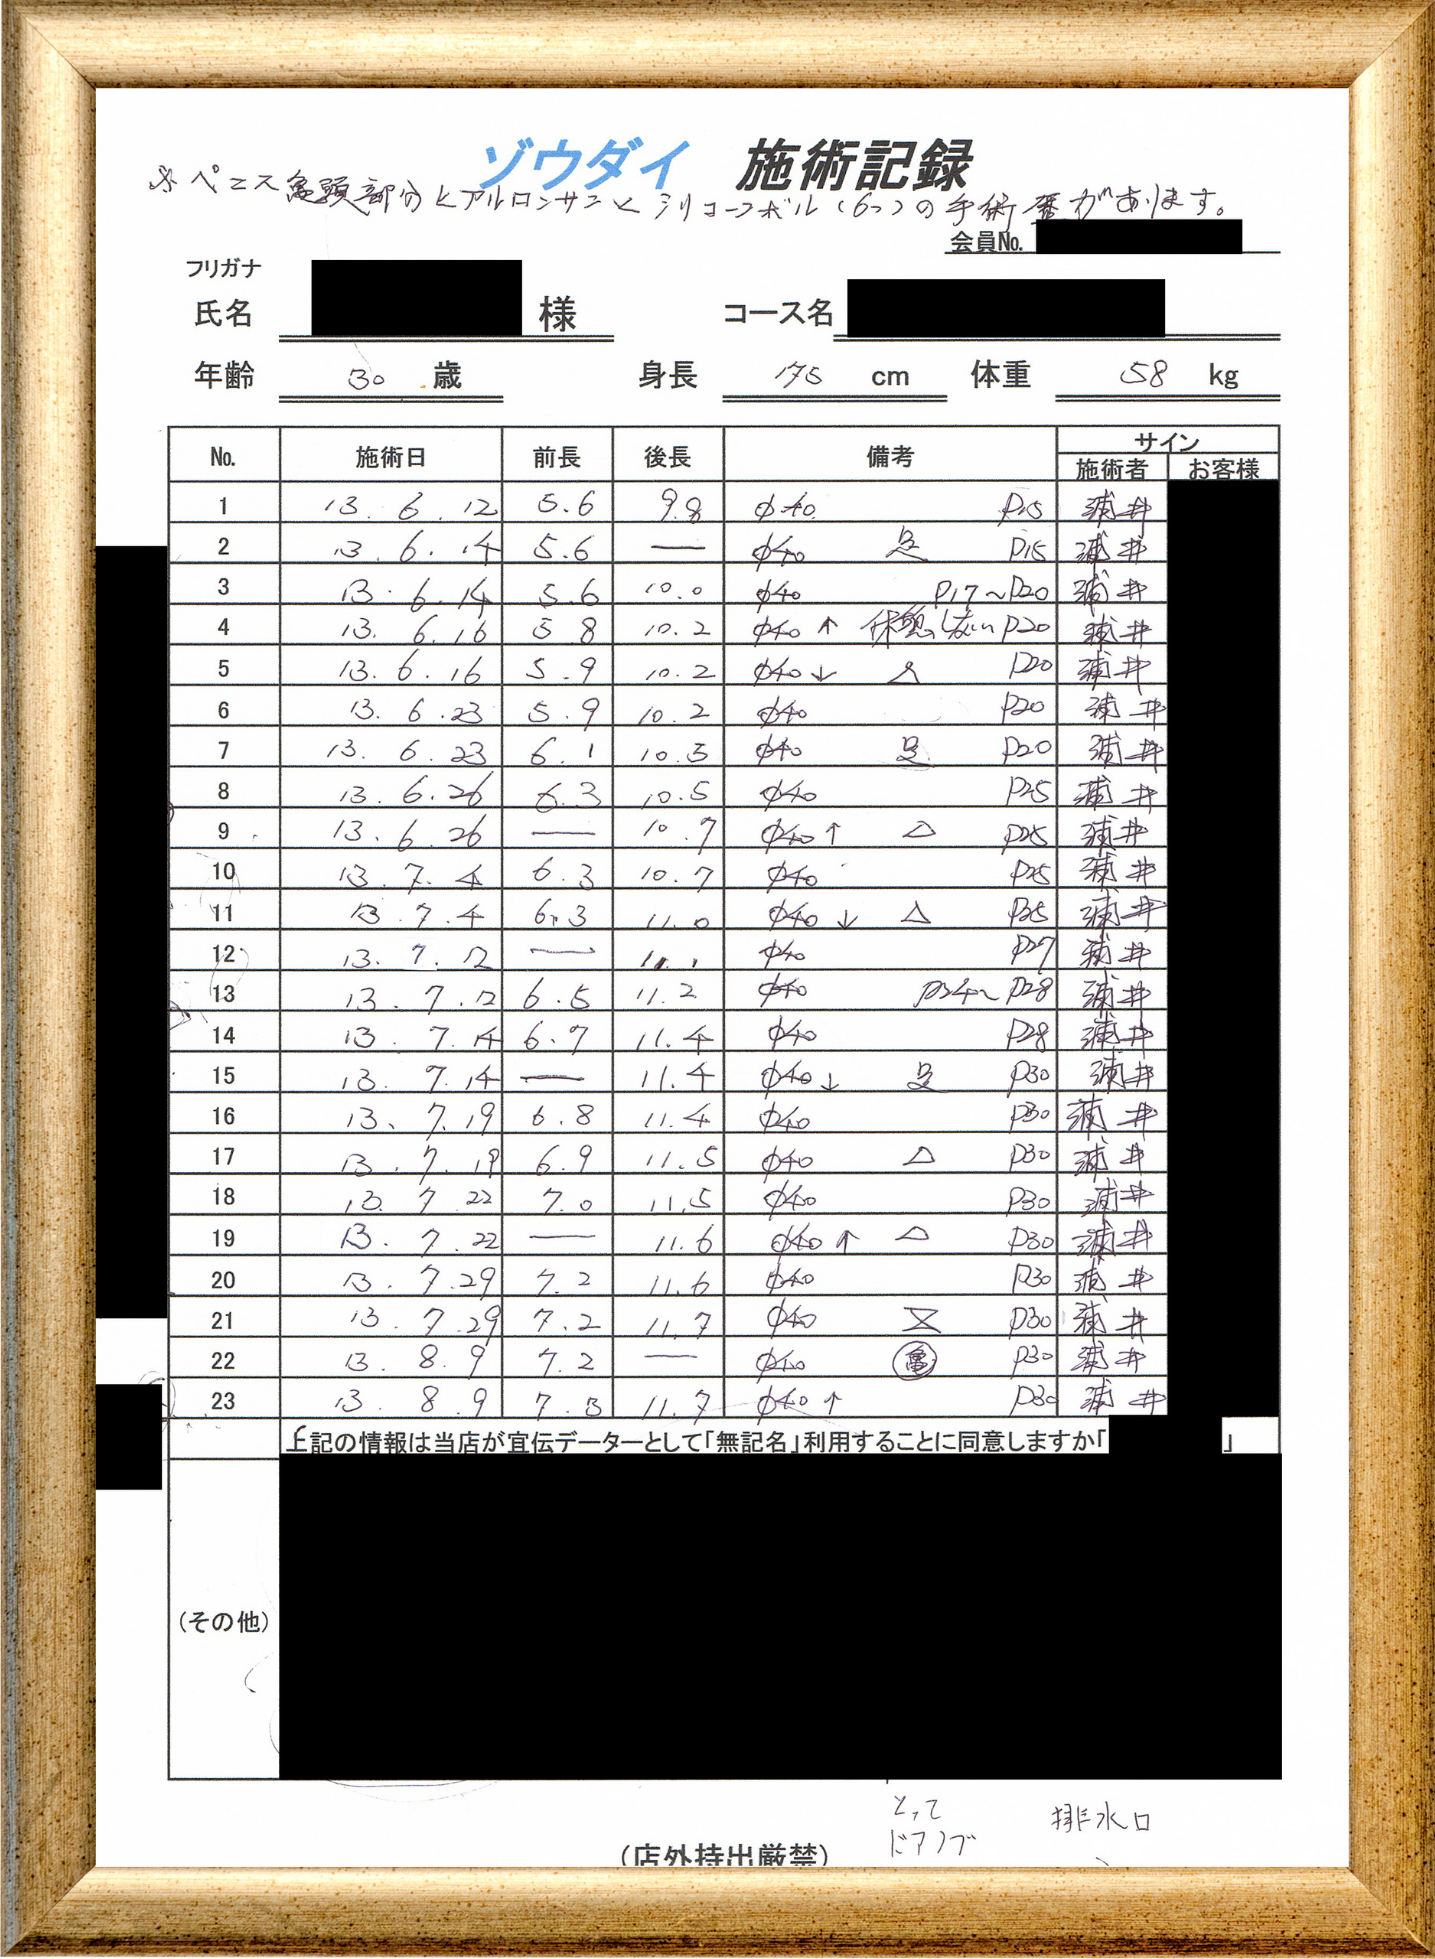 ゾウダイ 施術記録
※ペニス亀頭部分ヒアルロンサンとシリコーンボール(6つ)の手術歴があります。
会員No.
フリガナ
氏名 様 コース名
年齢 30 歳 身長 175 cm 体重 58 kg
No. 施術日 前長 後長 備考 サイン
施術者 お客様
1 13. 6. 12 5.6 9.8 φ40 P15 浦井
2 13. 6. 14 5.6 — φ40 足 P15 浦井
3 13. 6. 14 5.6 10.0 φ40 P17~P20 浦井
4 13. 6. 16 5.8 10.2 φ40 ↑ 休憩しない P20 浦井
5 13. 6. 16 5.9 10.2 φ40 ↓ P20 浦井
6 13. 6. 23 5.9 10.2 φ40 P20 浦井
7 13. 6. 23 6.1 10.5 φ40 足 P20 浦井
8 13. 6. 26 6.3 10.5 φ40 P25 浦井
9 13. 6. 26 — 10.7 φ40 ↑ △ P25 浦井
10 13. 7. 4 6.3 10.7 φ40 P25 浦井
11 13. 7. 4 6.3 11.0 φ40 ↓ △ P25 浦井
12 13. 7. 12 — 11.1 φ40 P27 浦井
13 13. 7. 12 6.5 11.2 φ40 P24~P28 浦井
14 13. 7. 14 6.7 11.4 φ40 P28 浦井
15 13. 7. 14 — 11.4 φ40 ↓ 足 P30 浦井
16 13. 7. 19 6.8 11.4 φ40 P30 浦井
17 13. 7. 19 6.9 11.5 φ40 △ P30 浦井
18 13. 7. 22 7.0 11.5 φ40 P30 浦井
19 13. 7. 22 — 11.6 φ40 ↑ △ P30 浦井
20 13. 7. 29 7.2 11.6 φ40 P30 浦井
21 13. 7. 29 7.2 11.7 φ40 P30 浦井
22 13. 8. 9 7.2 — φ40 亀 P30 浦井
23 13. 8. 9 7.3 11.7 φ40 ↑ P30 浦井
上記の情報は当店が宣伝データーとして「無記名」利用することに同意しますか「 」
(その他)
とって 排水口
ドアノブ
(店外持出厳禁)